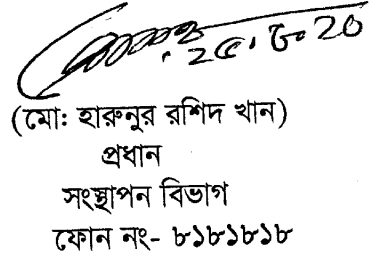 ২৫.৬.২০
(মো: হারুনুর রশিদ খান)
প্রধান
সংস্থাপন বিভাগ
ফোন নং- ৮১৮১৮১৮